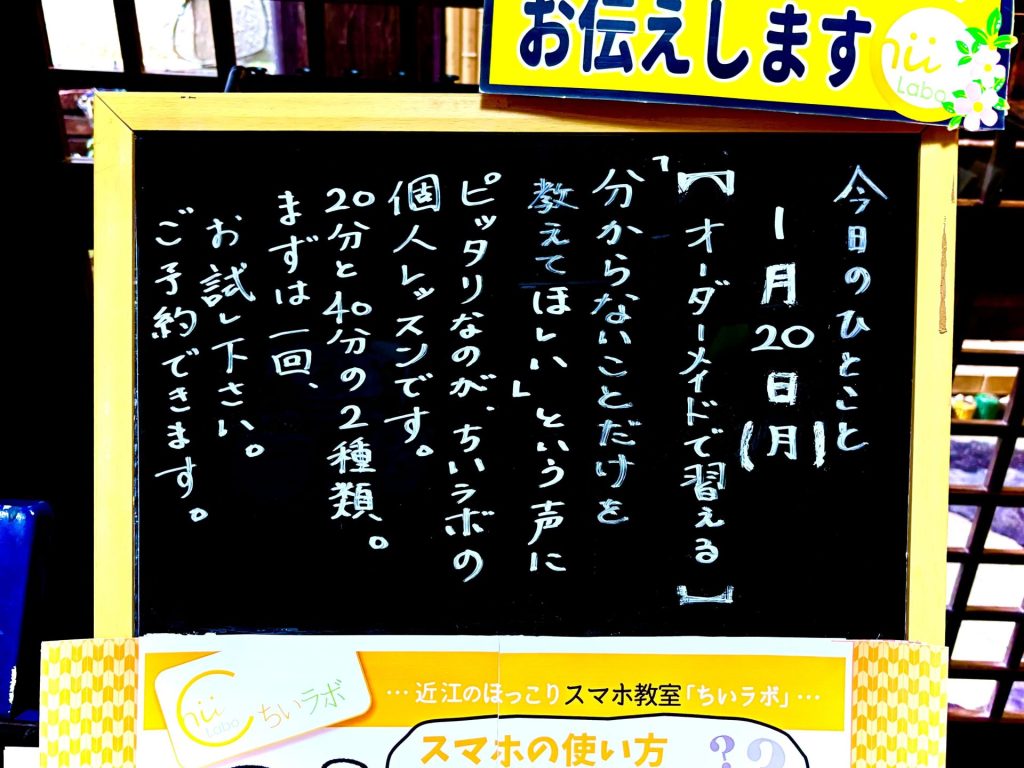 お伝えします
hii
Labo
今日のひとこと
1月20日(月)
【オーダーメイドで習える】
「分からないことだけを
教えてほしい」という声に
ピッタリなのが、ちいラボの
個人レッスンです。
20分と40分の2種類。
まずは一回、
お試し下さい。
ご予約できます。
Chii
Labo
ちいラボ
…近江のほっこりスマホ教室「ちいラボ」…
スマホの使い方
??